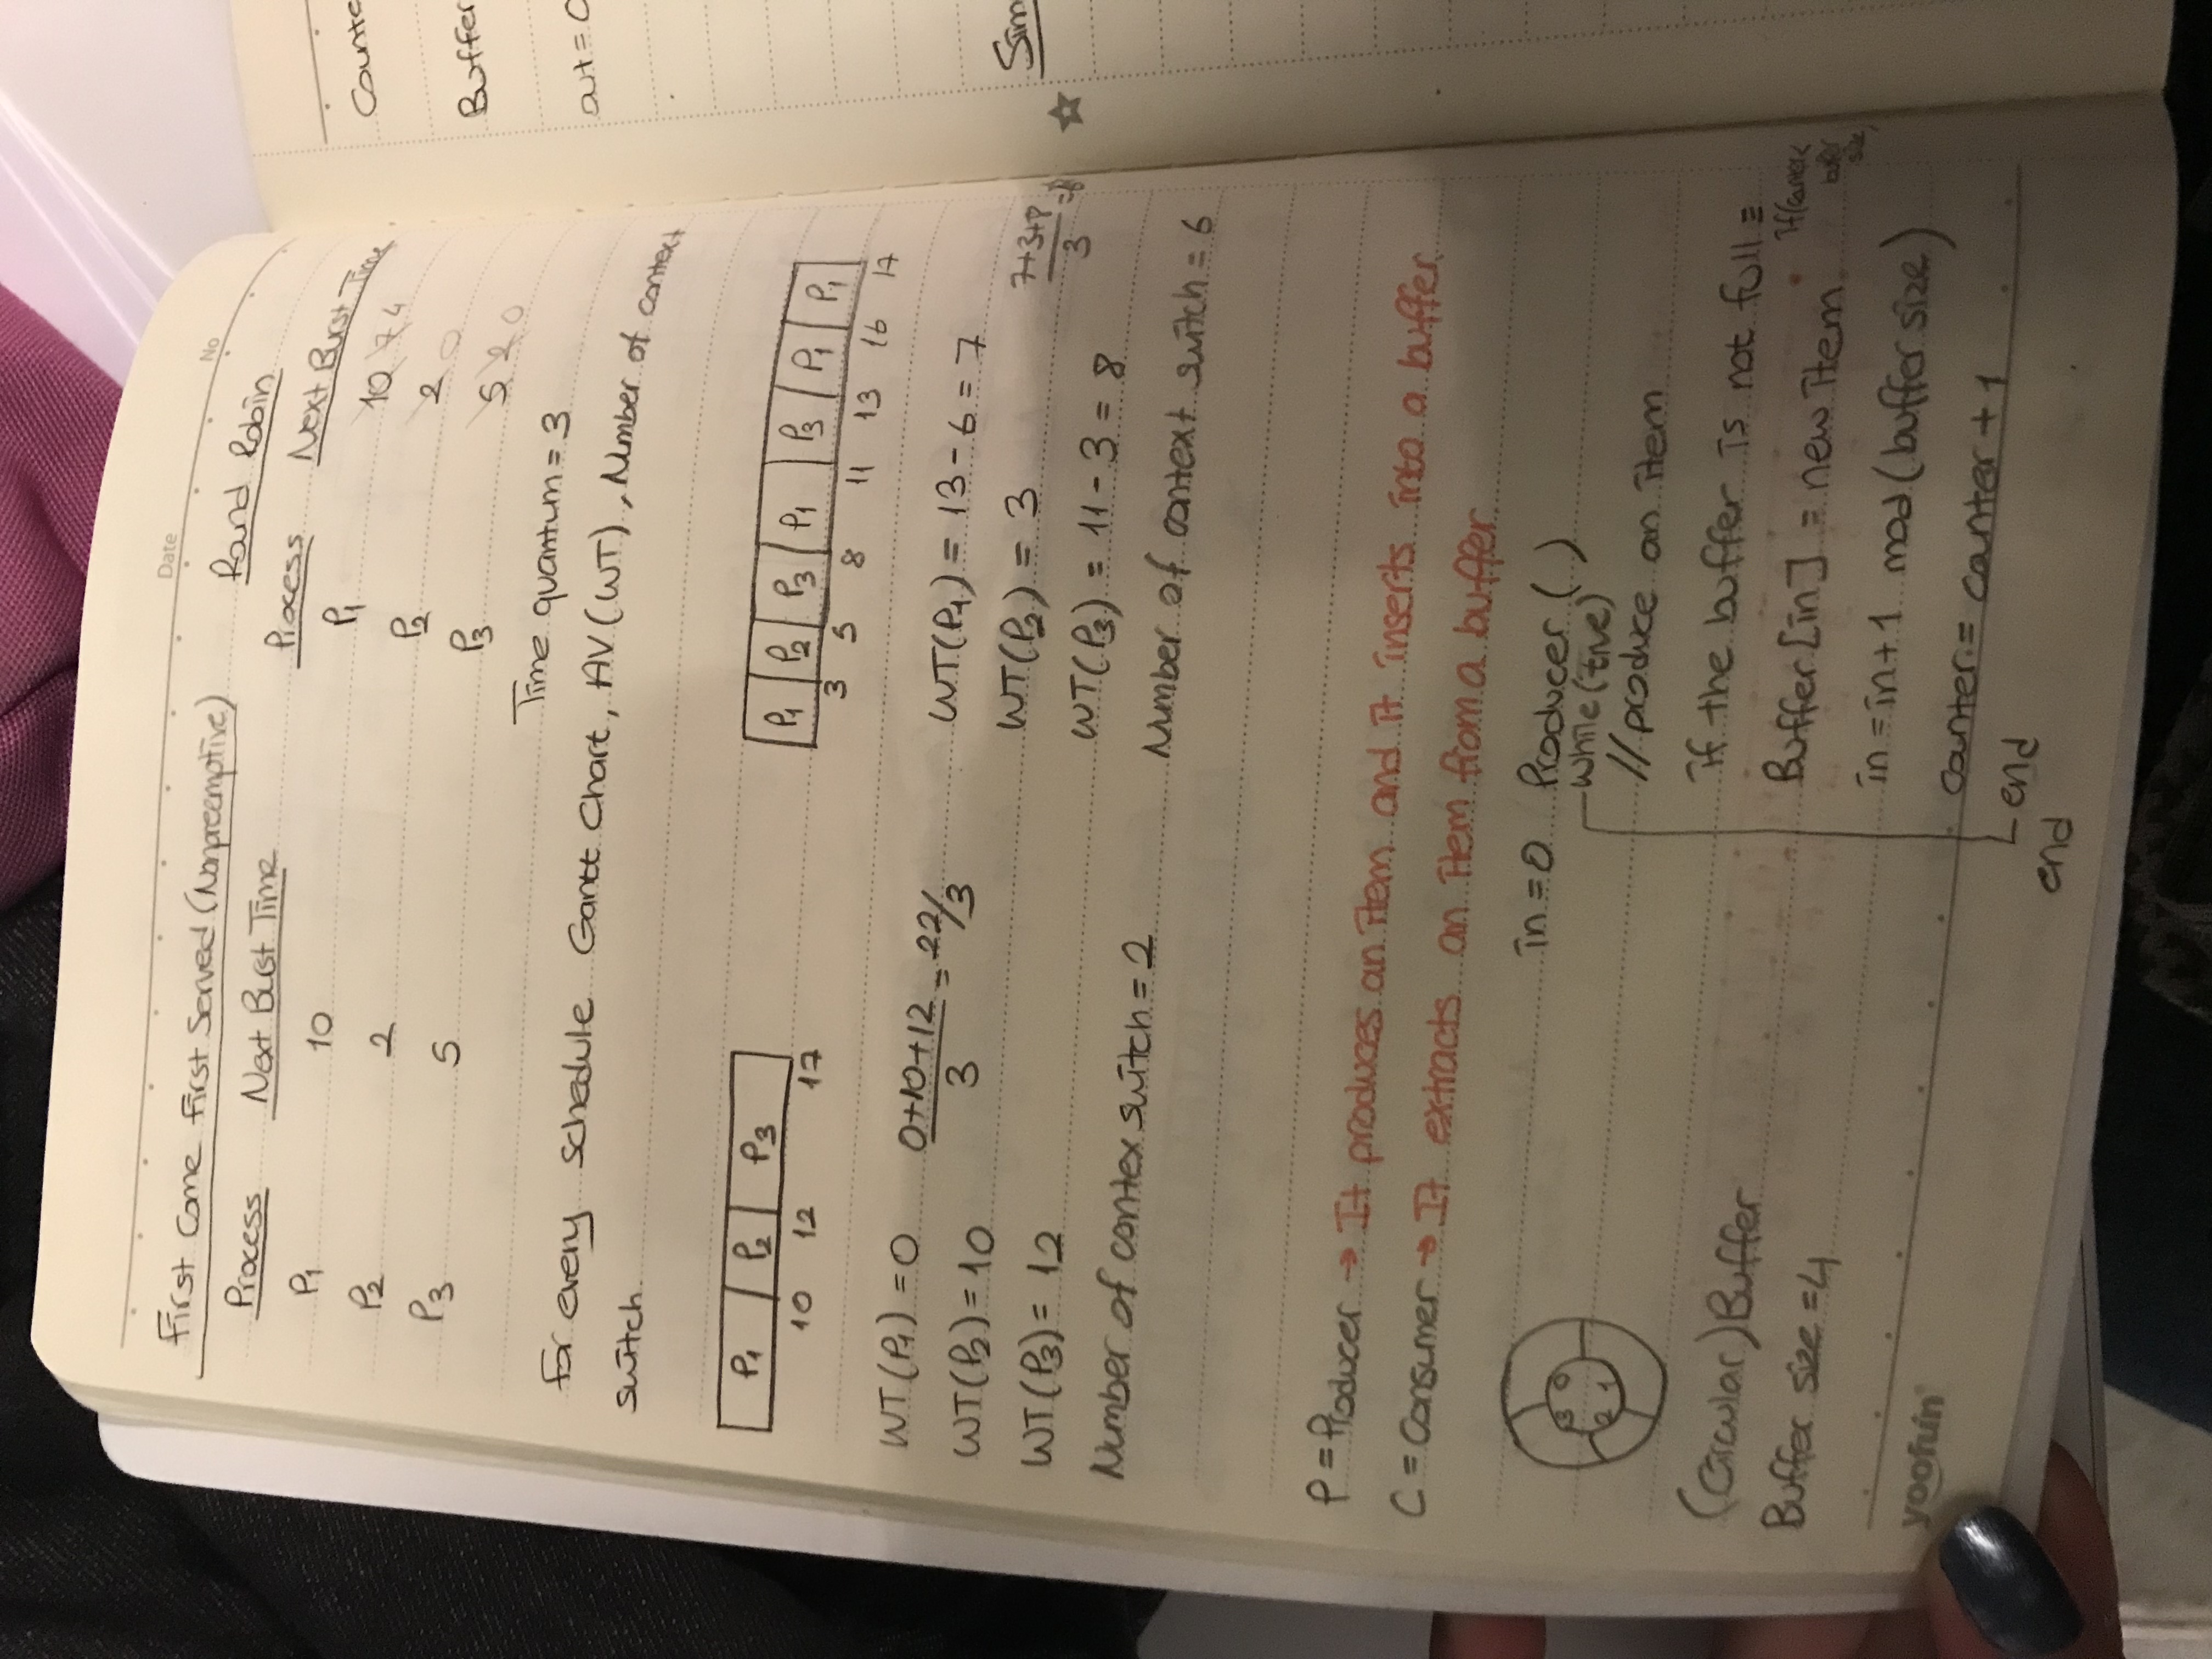 Date
No
First Come First Served (Nonpreemptive)
Process Next Burst Time
P1 10
P2 2
P3 5
Rand Robin
Process Next Burst Time
P1 10 7 4
P2 2 0
P3 5 2 0
Time quantum = 3
For every schedule Gantt Chart, AV(WT), Number of context
switch.
P1 P2 P3
10 12 17
P1 P2 P3 P1 P3 P1 P1
3 5 8 11 13 16 17
WT(P1) = 0
0+10+12/3 = 22/3
WT(P2) = 10
WT(P3) = 12
Number of contex switch = 2
WT(P1) = 13 - 6 = 7
WT(P2) = 3
7+3+8/3 =
WT(P3) = 11 - 3 = 8
Number of context switch = 6
P = Producer → It produces an item and it inserts into a buffer.
C = Consumer → It extracts an item from a buffer.
3 0
2 1
(Circular) Buffer
Buffer size = 4
in = 0 Producer ( )
while (true)
// produce an item
if the buffer is not full ≡
if(counter<
buffer
size)
Buffer [in] = new item
in = in + 1 mod (buffer size)
counter = counter + 1
end
end
yoofun
Buffer
out = 0